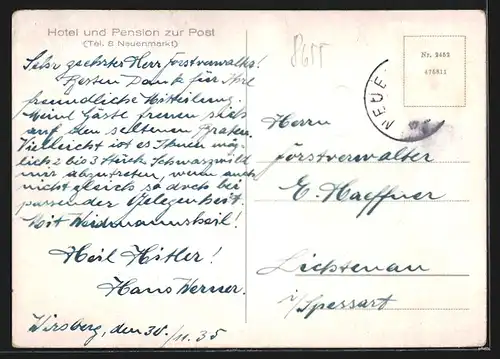 Hotel und Pension zur Post
(Tel. 8 Neuenmarkt)
Sehr geehrter Herr Forstverwalter!
Besten Dank für Ihre
freundliche Mitteilung.
Meine Gäste freuen sich
auf den seltenen Braten.
Vielleicht ist es Ihnen mög-
lich 2 bis 3 Stück Schwarzwild
mir abzutreten, wenn auch
nicht gleich so doch bei
passender Gelegenheit.
Mit Weidmannsheil!
Heil Hitler!
Hans Werner.
Wirsberg, den 30./11.35
8655
Nr. 2452
475811
NEUE
Herrn
Forstverwalter
E. Haeffner
Lichtenau
i/Spessart